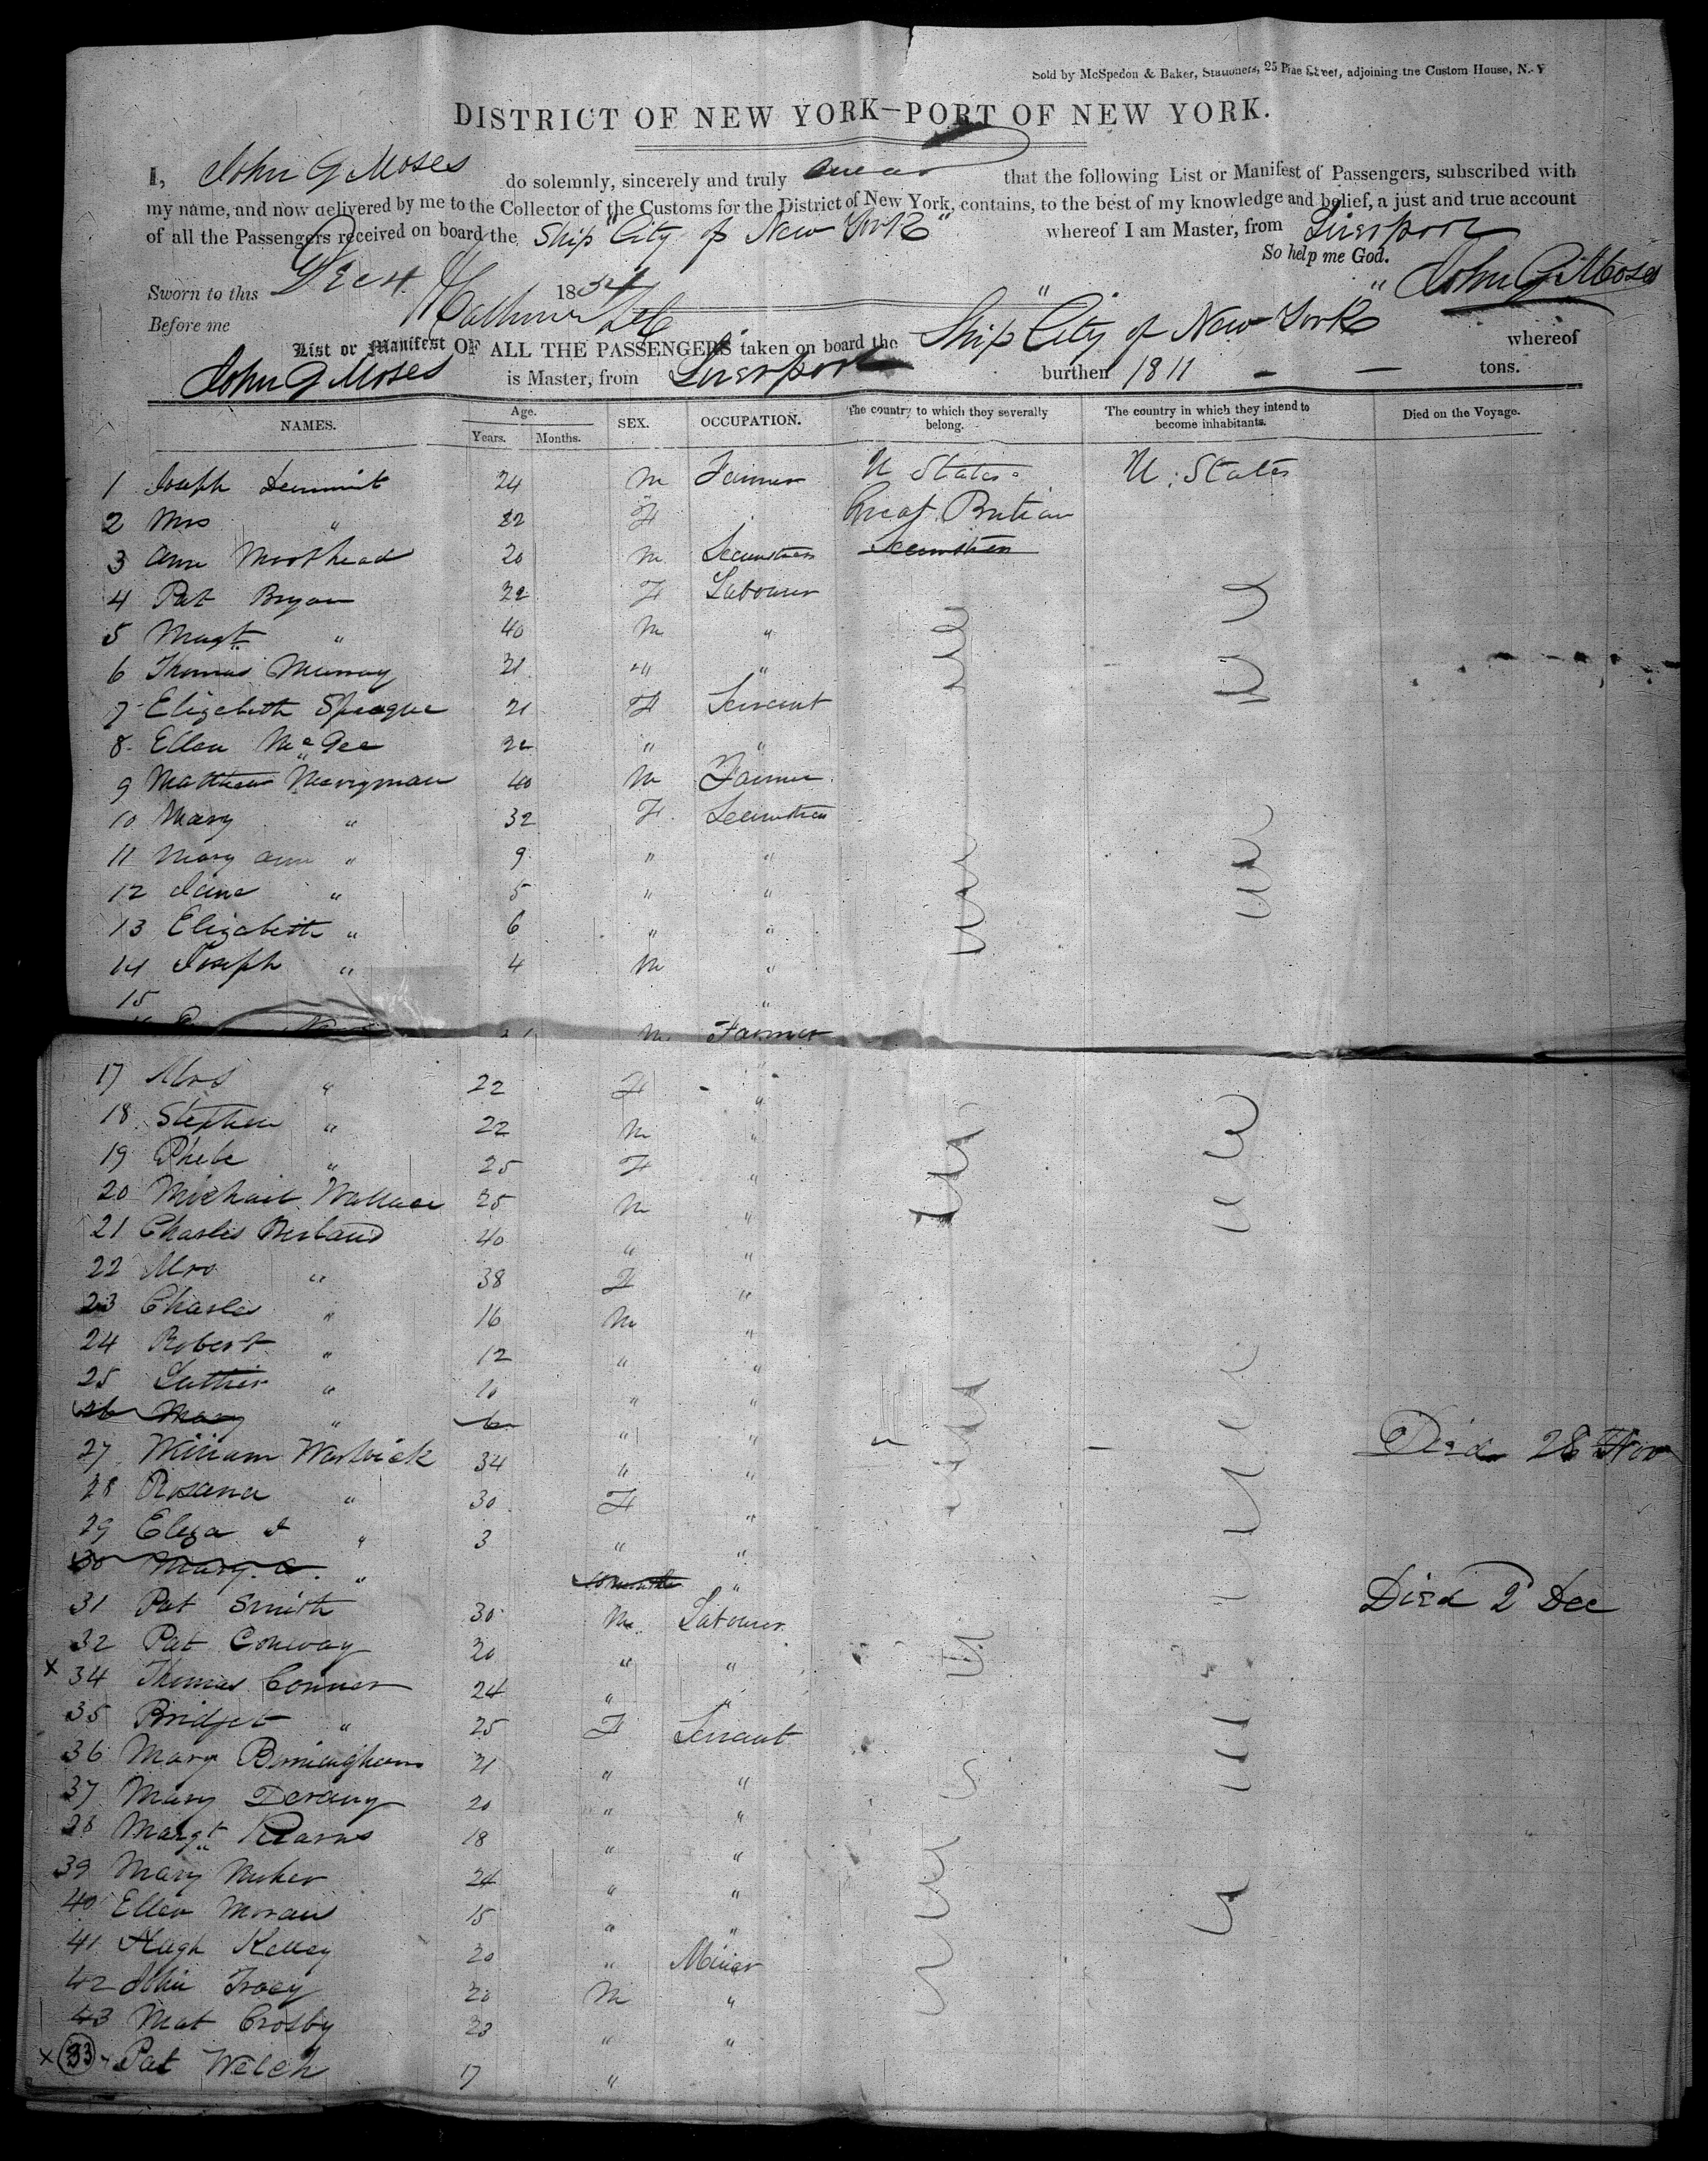 Sold by McSpedon & Baker, Stationers, 25 Pine Street, adjoining the Custom House, N. Y
DISTRICT OF NEW YORK—PORT OF NEW YORK.
I, John G Moses do solemnly, sincerely and truly swear that the following List or Manifest of Passengers, subscribed with
my name, and now delivered by me to the Collector of the Customs for the District of New York, contains, to the best of my knowledge and belief, a just and true account
of all the Passengers received on board the Ship "City of New York" whereof I am Master, from Liverpool
So help me God.
Sworn to this Dec 4 1854 John G Moses
Before me
List or Manifest OF ALL THE PASSENGERS taken on board the Ship "City of New York" whereof
John G Moses is Master, from Liverpool burthen 1811 — — tons.
NAMES. Age. Years. Months. SEX. OCCUPATION. The country to which they severally belong. The country in which they intend to become inhabitants. Died on the Voyage.
1 Joseph 24 M Farmer U States U. States
2 Mrs " 22 F Great Britian
3 Ann Moorhead 20 M Seamstress Seamstress
4 Pat Bryan 22 F Labourer
5 Magt " 40 M "
6 Thomas Murray 21 " "
7 Elizabeth Sprague 21 F Servant
8 Ellen McGee 22 " "
9 Matthew Merryman 40 M Farmer
10 Mary " 32 F Seamstress
11 Mary Ann " 9 " "
12 Jane " 5 " "
13 Elizabeth " 6 " "
14 Joseph " 4 M "
15 "
M Farmer
17 Mrs " 22 F "
18 Stephen " 22 M "
19 Phebe " 25 F "
20 Michail Wallace 25 M "
21 Charles 40 " "
22 Mrs " 38 F "
23 Charles " 16 M "
24 Robert " 12 " "
25 Luther " 10 " "
26 Mary " 6 " " Died 28 Nov
27 William Warwick 34 " "
28 Rosana " 30 F "
29 Eliza J " 3 " "
30 Mary A. " months " Died 2 Dec
31 Pat Smith 30 M Labourer
32 Pat Conway 20 " "
x 34 Thomas Conner 24 " "
35 Bridget " 25 F Servant
36 Mary Birmingham 21 " "
37 Mary 20 " "
38 Margt Kearns 18 " "
39 Mary 24 " "
40 Ellen Moran 15 " "
41 Hugh Kelley 20 " Miner
42 John Tracy 20 M "
43 Mat Crosby 23 " "
x 33 Pat Welch 17 "